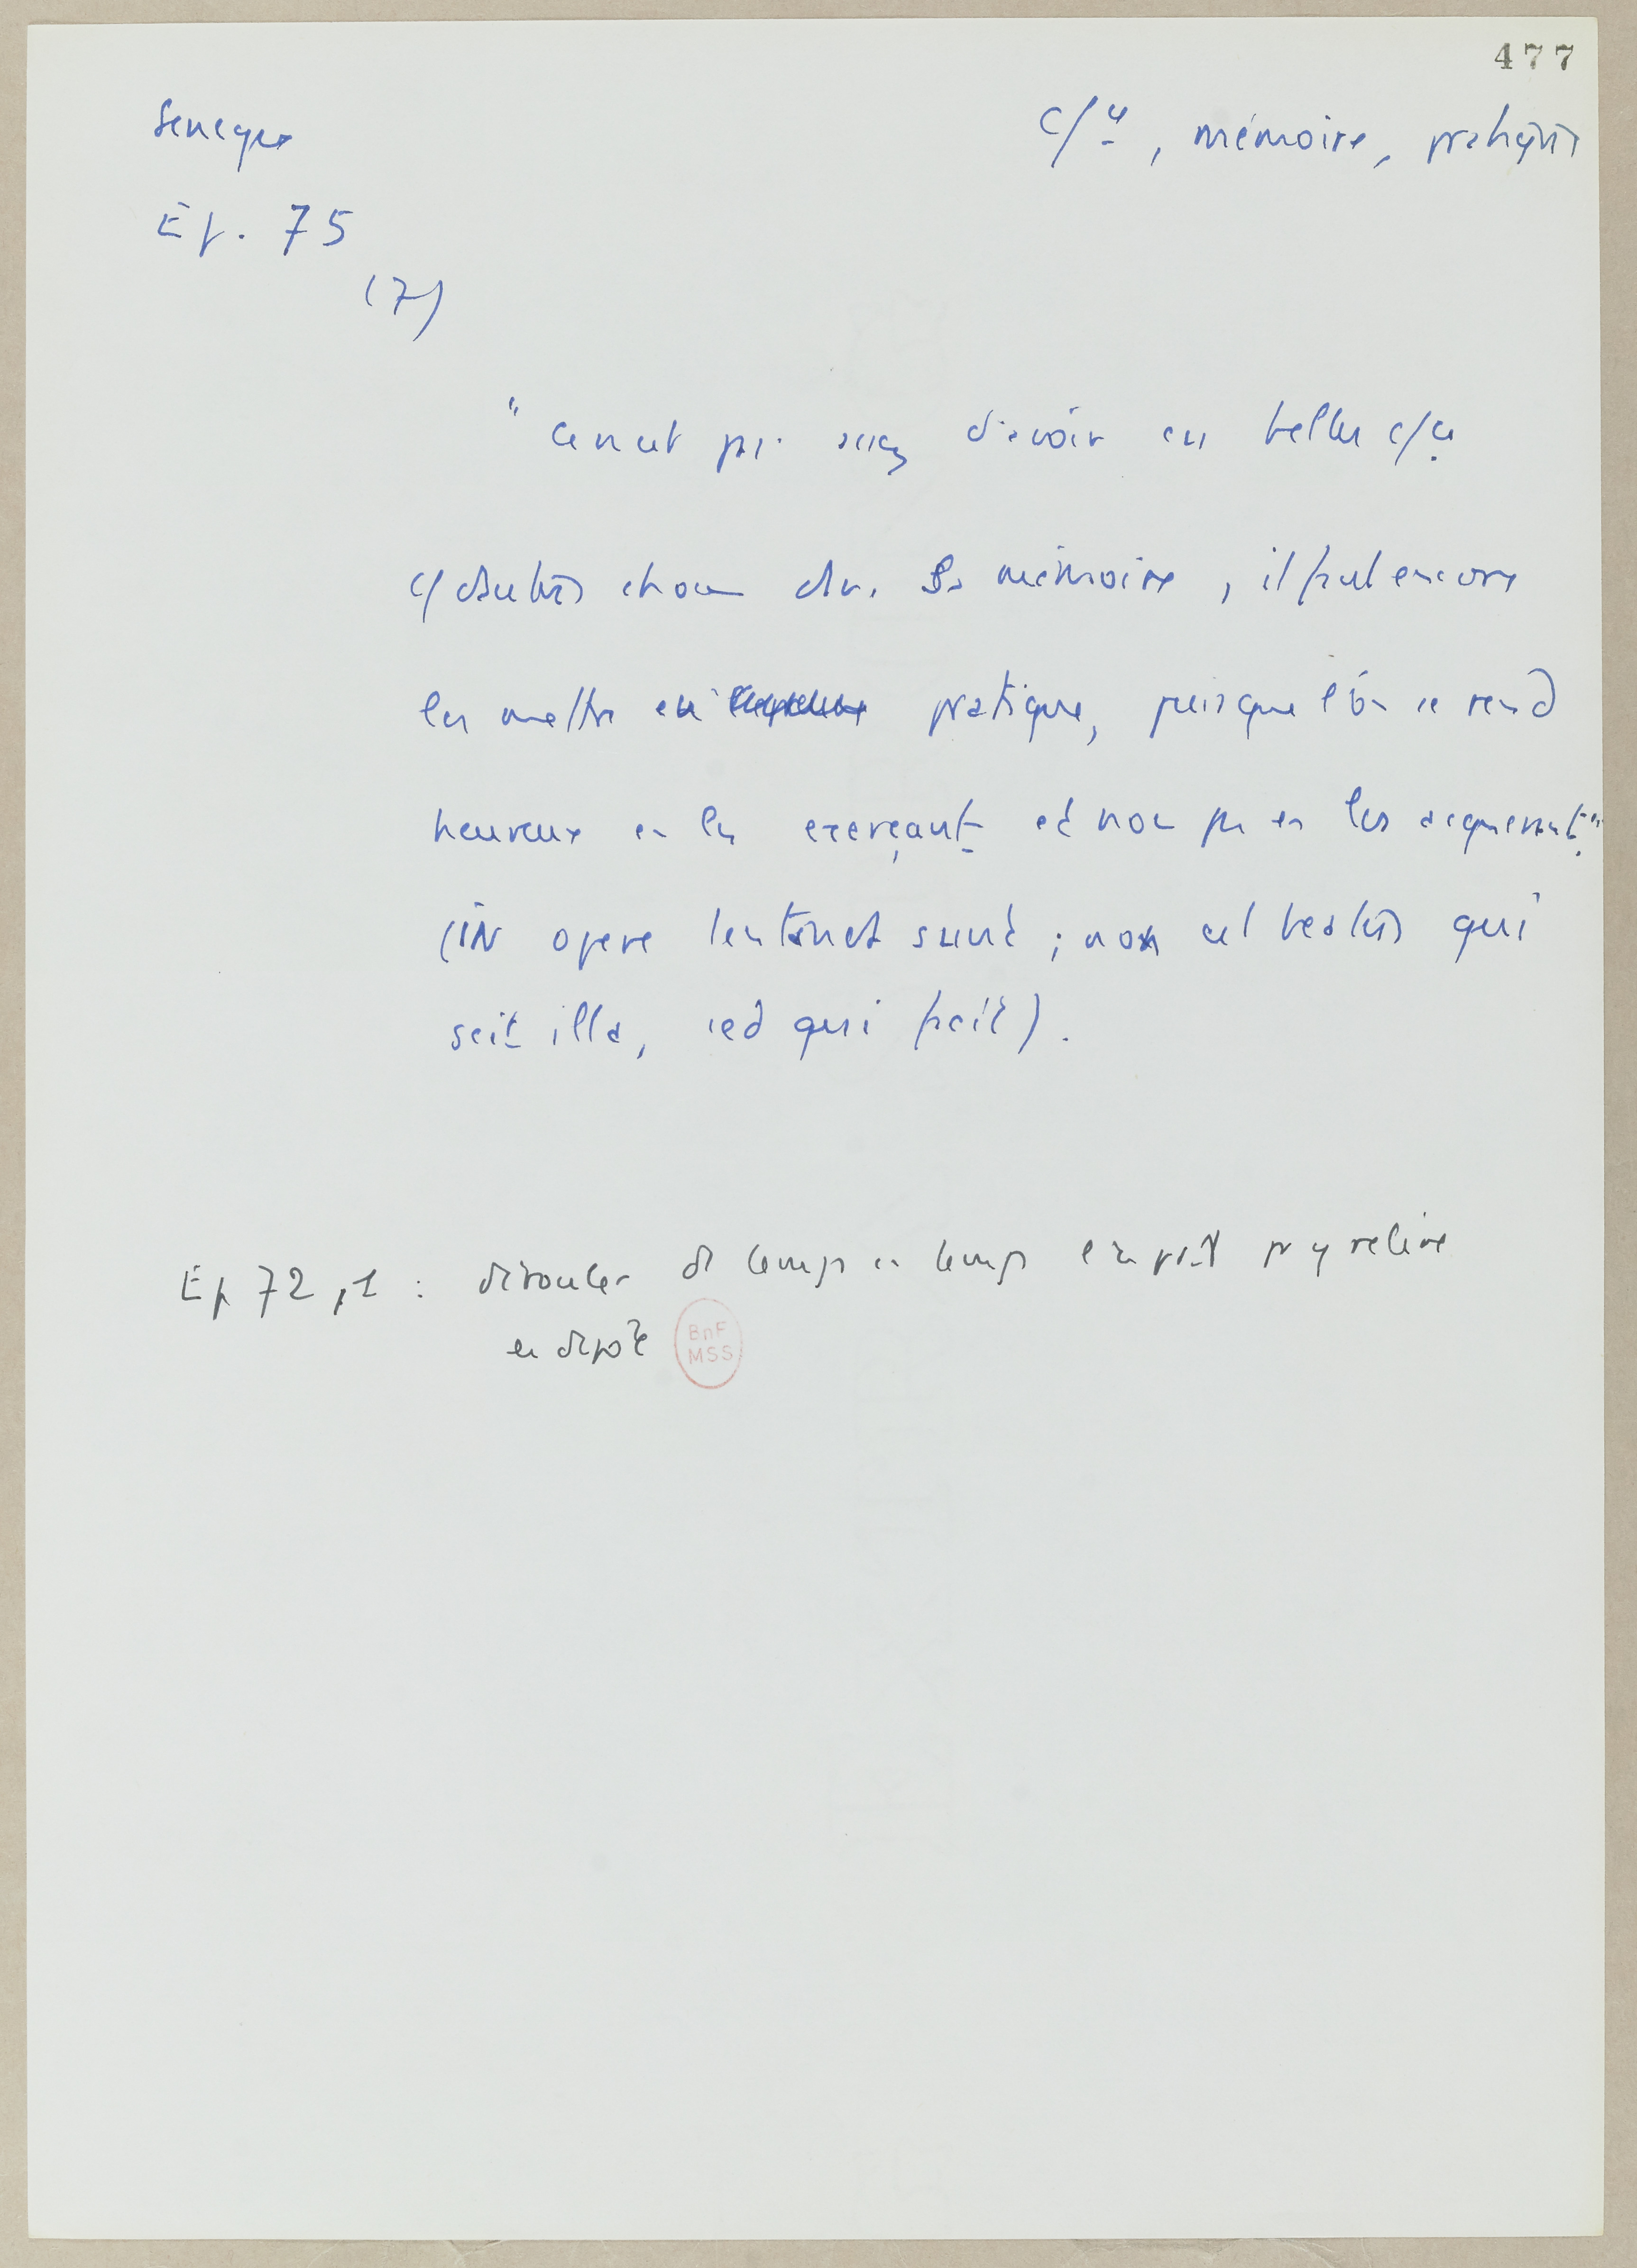 477
Seneque
c/ce, mémoire, pratiques
Ep. 75
(7)
"ce n'est pas assez d'avoir ces belles c/ces
c/ d'autres choses ds. sa mémoire, il faut encore
les mettre en pratique, puisque l'on se rend
heureux en les exerçant et non pas en les acquerant"
(IN opere tentanda sunt ; non est beatus qui
scit illa, sed qui facit).
Ep 72,1 : dérouler de temps en temps l'esprit pr y relire
en dépôt
BnF
MSS